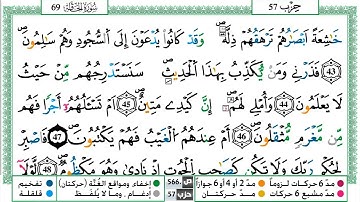 69 سُورَةُ الحَاقَّة حِزْب 57
خَٰشِعَةً أَبْصَٰرُهُمْ تَرْهَقُهُمْ ذِلَّةٌۖ وَقَدْ كَانُوا۟ يُدْعَوْنَ إِلَى ٱلسُّجُودِ وَهُمْ سَٰلِمُونَ
43 فَذَرْنِے وَمَنْ يُّكَذِّبُ بِهَٰذَا ٱلْحَدِيثِۖ سَنَسْتَدْرِجُهُم مِّنْ حَيْثُ
لَا يَعْلَمُونَ 44 وَأُمْلِے لَهُمْۖ إِنَّ كَيْدِے مَتِينٌۖ 45 اَمْ تَسْـَٔلُهُمُۥٓ أَجْرًا فَهُم
مِّن مَّغْرَمٍ مُّثْقَلُونَ 46 أَمْ عِندَهُمُ ٱلْغَيْبُ فَهُمْ يَكْتُبُونَۖ 47 فَاصْبِرْ
لِحُكْمِ رَبِّكَ وَلَا تَكُن كَصَاحِبِ ٱلْحُوتِ إِذْ نَادَىٰ وَهُوَ مَكْظُومٌۖ 48 لَّوْلَآ
مدّ 6 حركات لزوماً مدّ 2 أو 4 أو 6 جوازاً ص 566 إخفاء، ومواقع الغُنَّة (حركتان) تفخيم
مدّ مشبع 6 حركات مدّ حركتان حزب 57 إدغام، وما لا يُلفَظ قلقلة